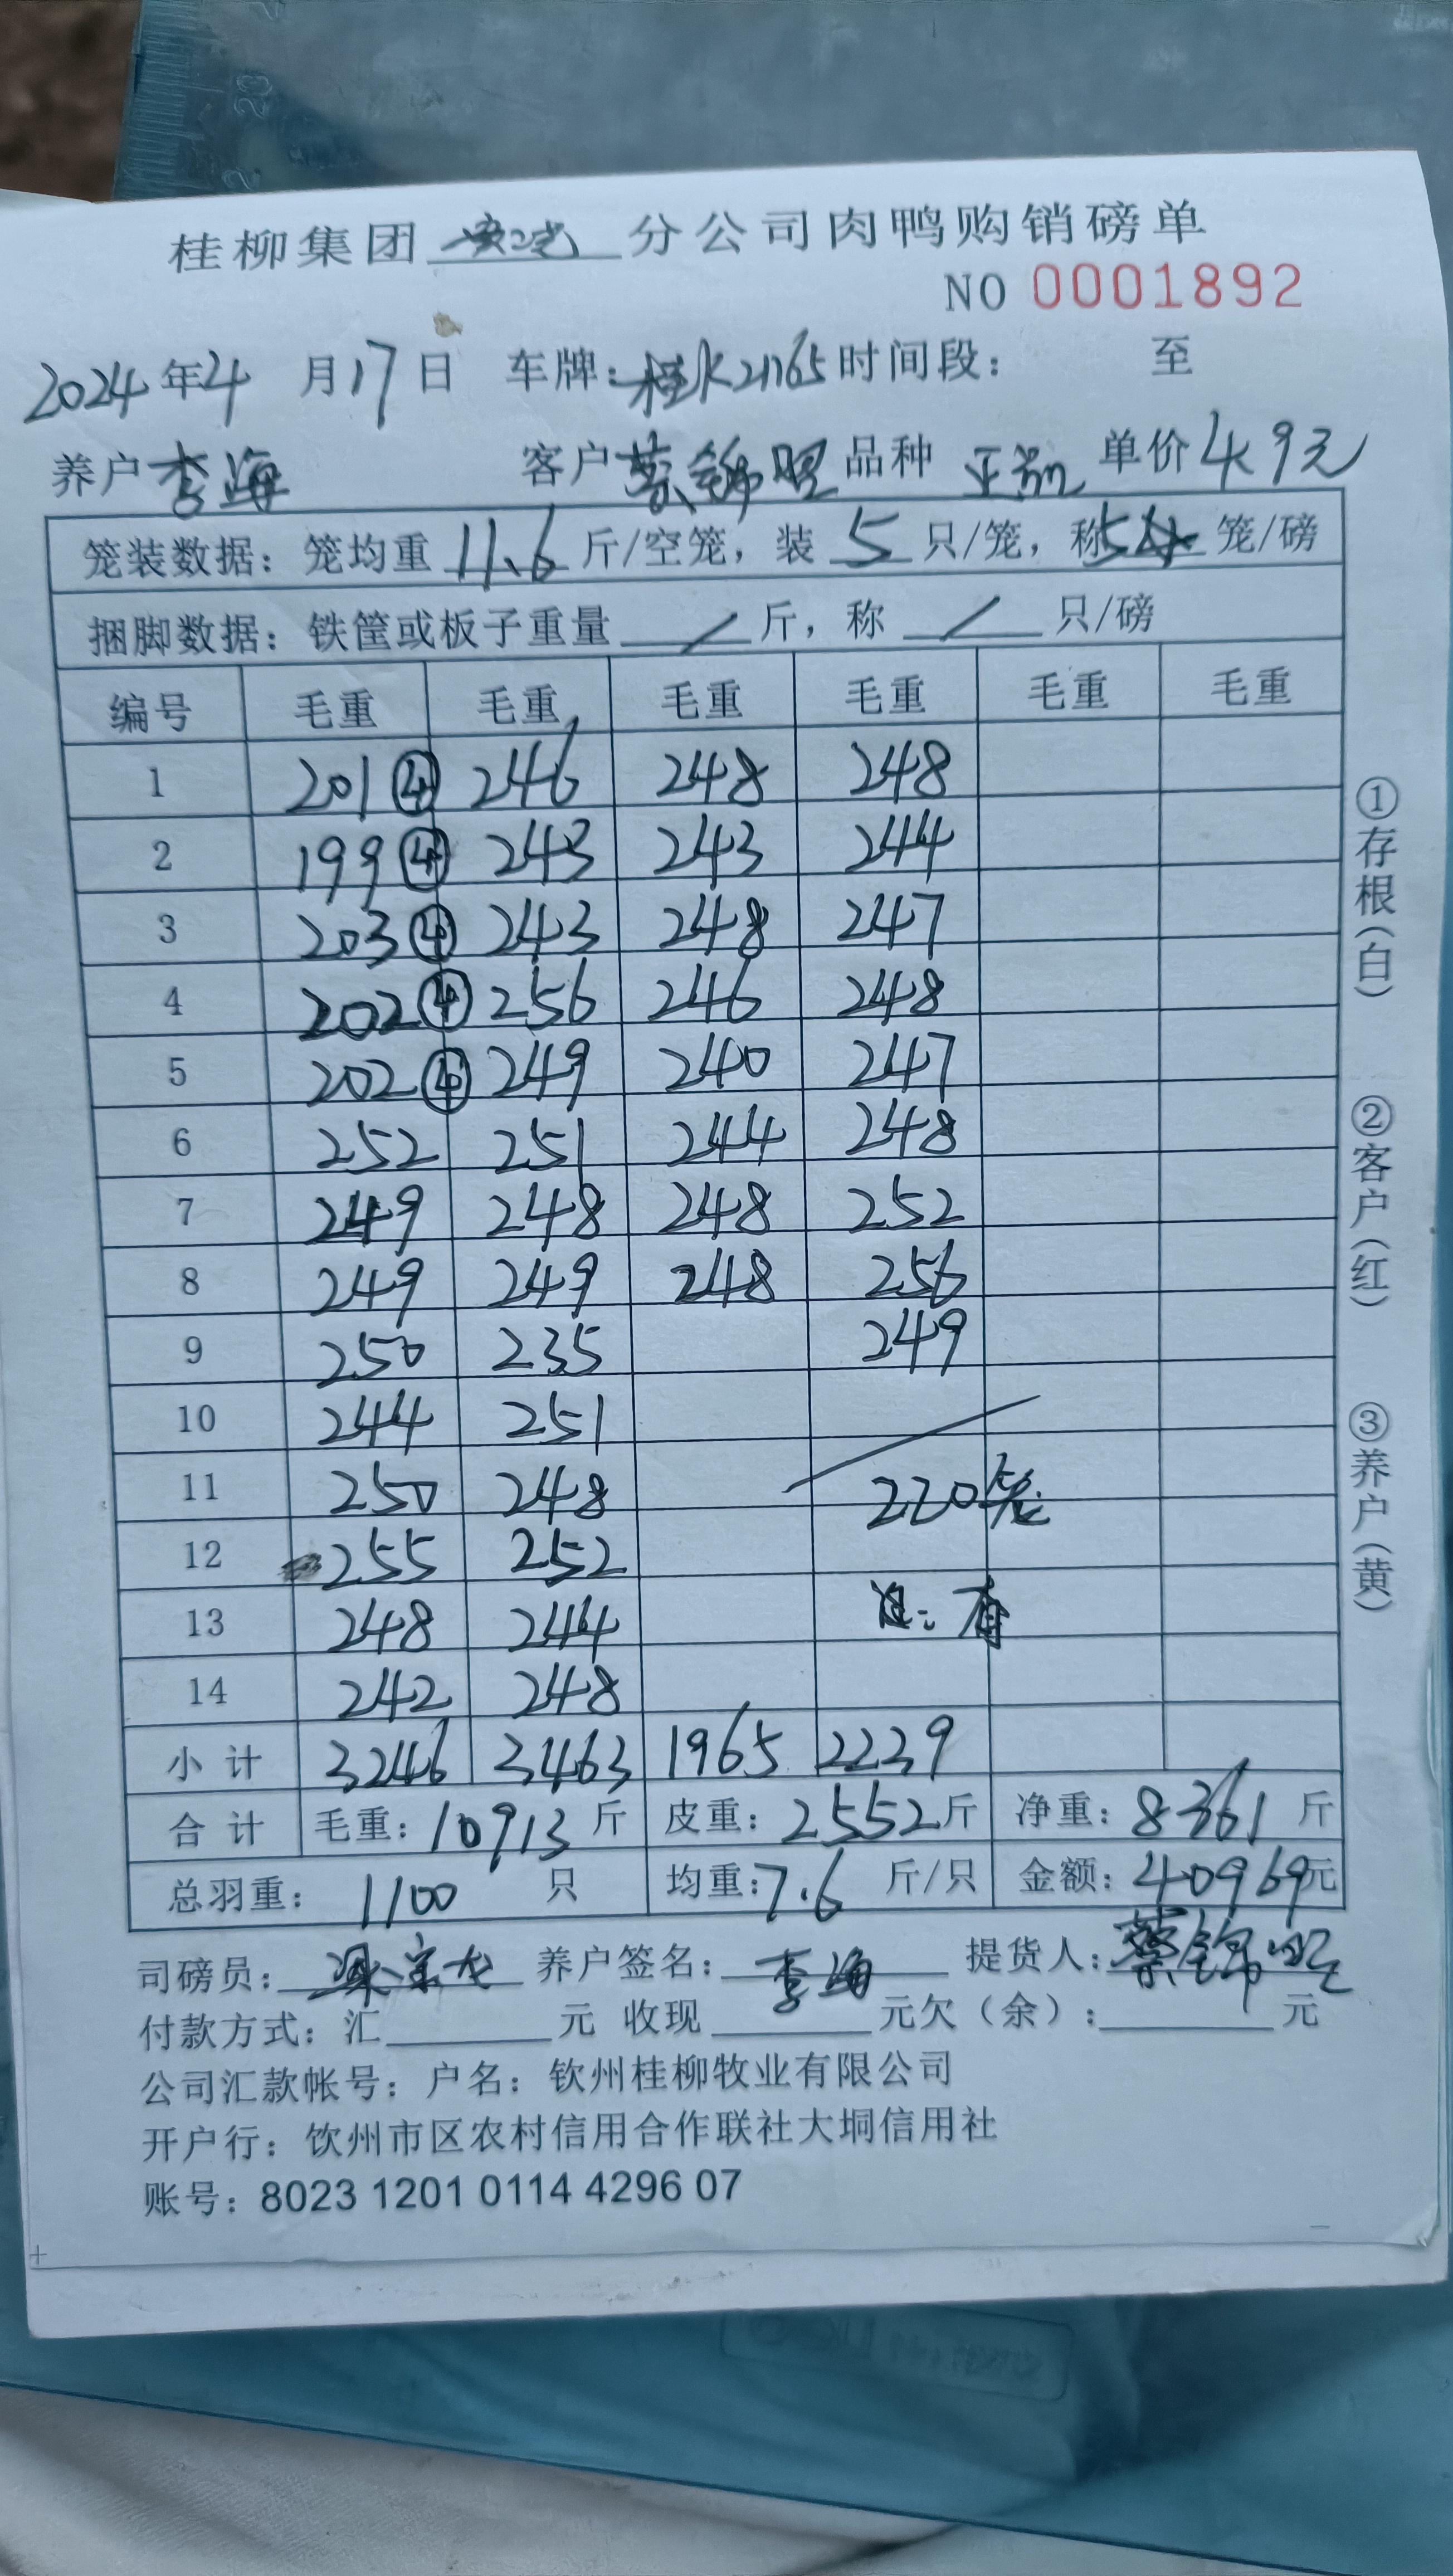 桂柳集团 分公司肉鸭购销磅单
NO 0001892
2024年4月17日 车牌: 时间段: 至
养户 李海 客户 蔡锦 品种 单价 4.9元
笼装数据: 笼均重 11.6 斤/空笼, 装 5 只/笼, 称 54 笼/磅
捆脚数据: 铁筐或板子重量 / 斤, 称 / 只/磅
编号 毛重 毛重 毛重 毛重 毛重 毛重
1 201④ 246 248 248
2 199④ 243 243 244
3 203④ 243 248 247
4 202④ 256 246 248
5 202④ 249 240 247
6 252 251 244 248
7 249 248 248 252
8 249 249 248 256
9 250 235 249
10 244 251
11 250 248 220笼
12 255 252
13 248 244
14 242 248
小计 3246 3463 1965 2239
合计 毛重: 10913 斤 皮重: 2552斤 净重: 8361 斤
总羽重: 1100 只 均重: 7.6 斤/只 金额: 40969元
司磅员: 梁宗龙 养户签名: 李海 提货人: 蔡锦
付款方式: 汇 元 收现 元欠(余): 元
公司汇款帐号: 户名: 钦州桂柳牧业有限公司
开户行: 钦州市区农村信用合作联社大垌信用社
账号: 8023 1201 0114 4296 07
①存根(白)
②客户(红)
③养户(黄)